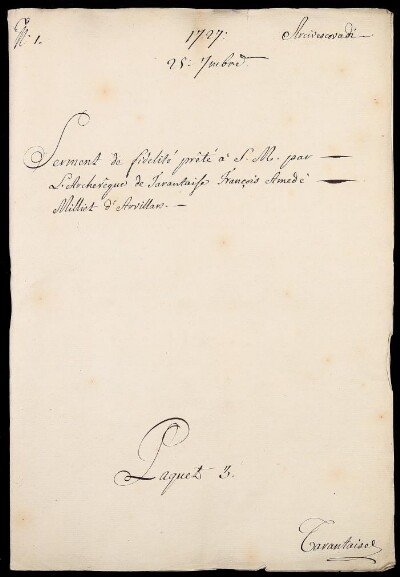 N.º 1.
1727.
Arcivescovadi
25. 7mbre
Serment de fidelité prêté à S. M. par
L'Archevêque de Tarantaise François Amedé
Milliet d'Arvillars.
Paquet 3.
Tarantaise